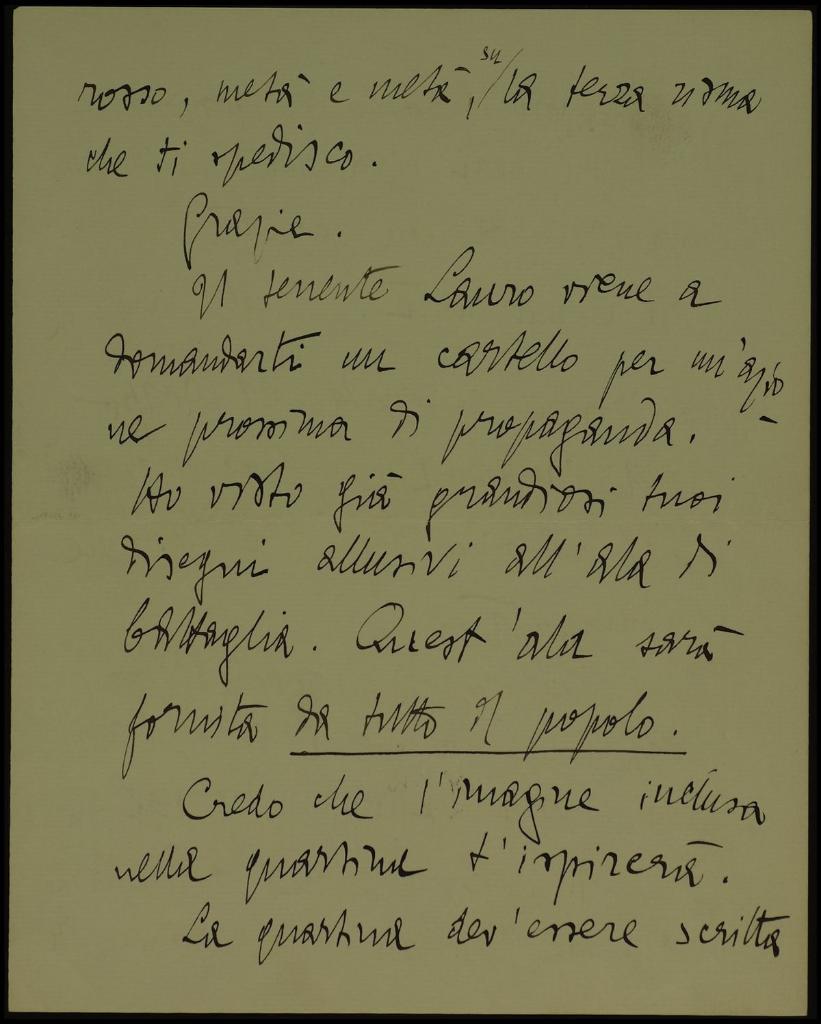 rosso, metà e metà, su/la terza risma
che ti spedisco.
Grazie.
Il tenente Lauro viene a
domandarti un cartello per un'azio
ne prossima di propaganda.
Ho visto già grandiosi tuoi
disegni allusivi all'ala di
battaglia. Quest'ala sarà
fornita da tutto il popolo.
Credo che l'imagine inclusa
nella quartina t'ispirerà.
La quartina dev'essere scritta